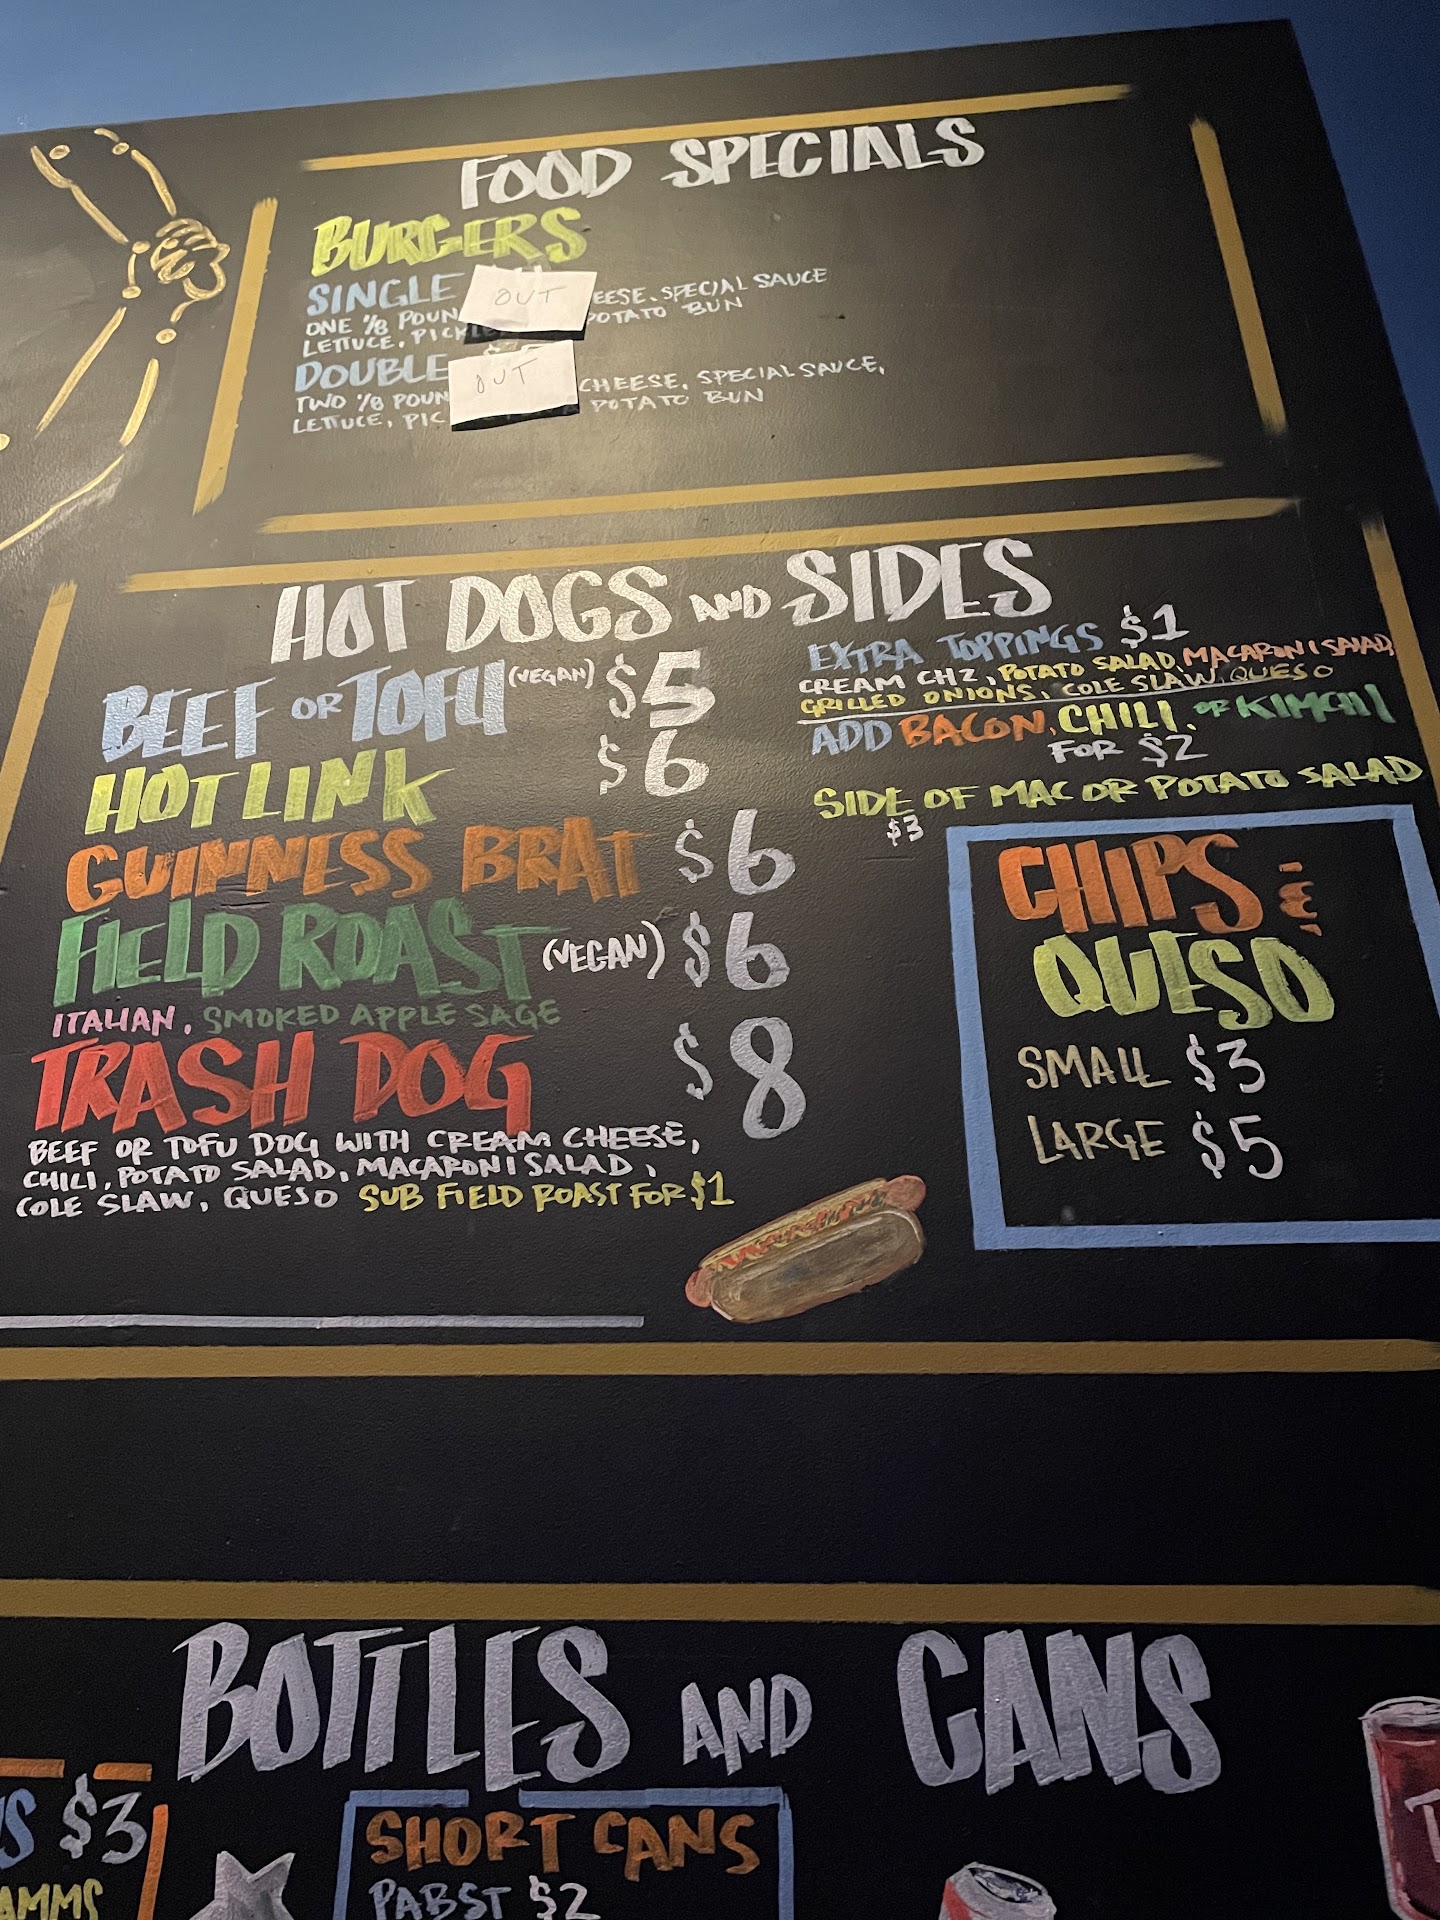 FOOD SPECIALS
BURGERS
SINGLE OUT EESE, SPECIAL SAUCE
ONE 1/8 POUN POTATO BUN
LETTUCE, PICKLE
DOUBLE OUT CHEESE, SPECIAL SAUCE,
TWO 1/8 POUN POTATO BUN
LETTUCE, PIC
HOT DOGS AND SIDES
BEEF OR TOFU (VEGAN) $5
HOT LINK $6
GUINNESS BRAT $6
FIELD ROAST (VEGAN) $6
ITALIAN, SMOKED APPLE SAGE
TRASH DOG $8
BEEF OR TOFU DOG WITH CREAM CHEESE,
CHILI, POTATO SALAD, MACARONI SALAD,
COLE SLAW, QUESO SUB FIELD ROAST FOR $1
EXTRA TOPPINGS $1
CREAM CHZ, POTATO SALAD, MACARONI SALAD,
GRILLED ONIONS, COLE SLAW, QUESO
ADD BACON, CHILI, OR KIMCHI
FOR $2
SIDE OF MAC OR POTATO SALAD
$3
CHIPS
QUESO
SMALL $3
LARGE $5
BOTTLES AND CANS
$3
AMMS
SHORT CANS
PABST $2